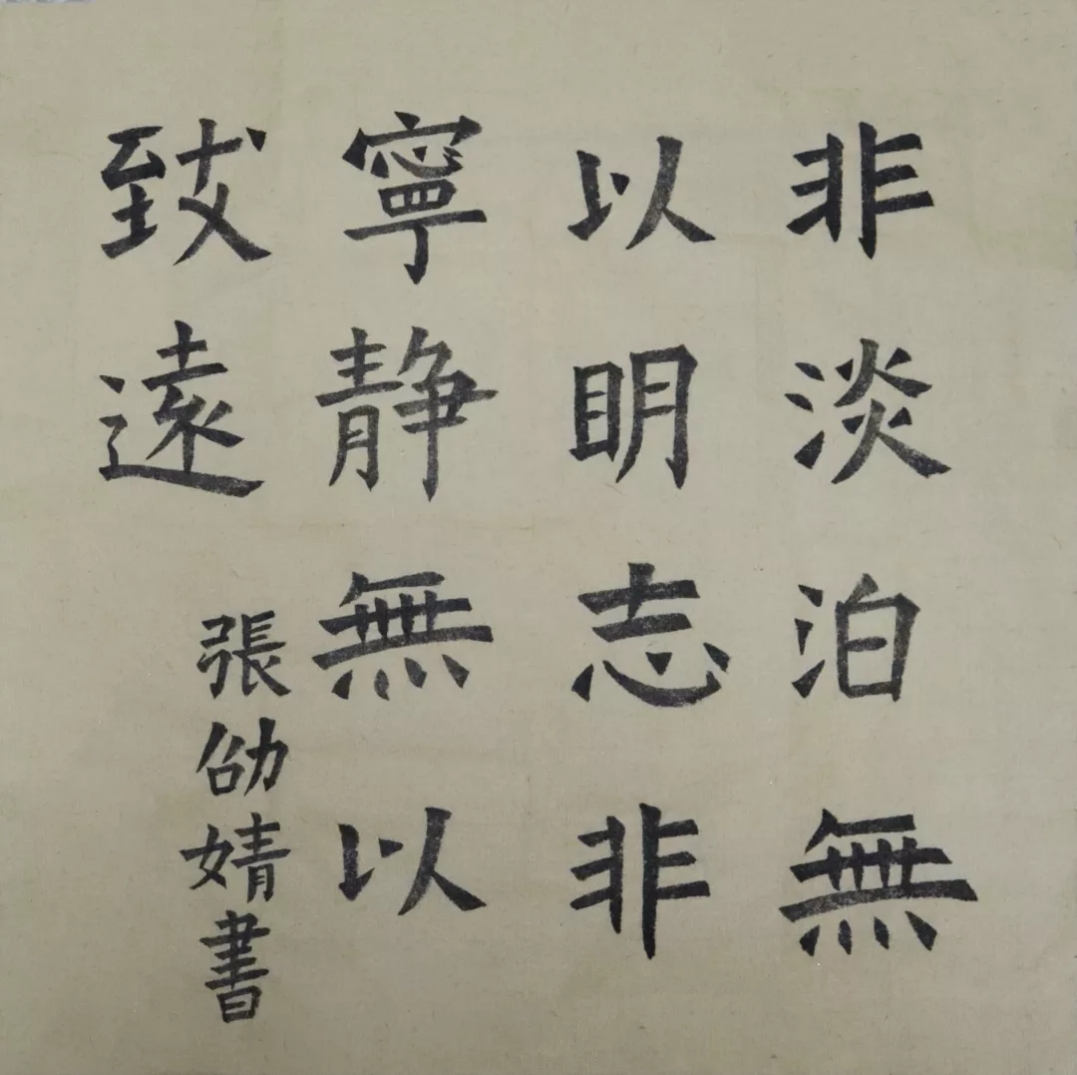 非淡泊無
以明志非
寧静無以
致遠
張劭婧書